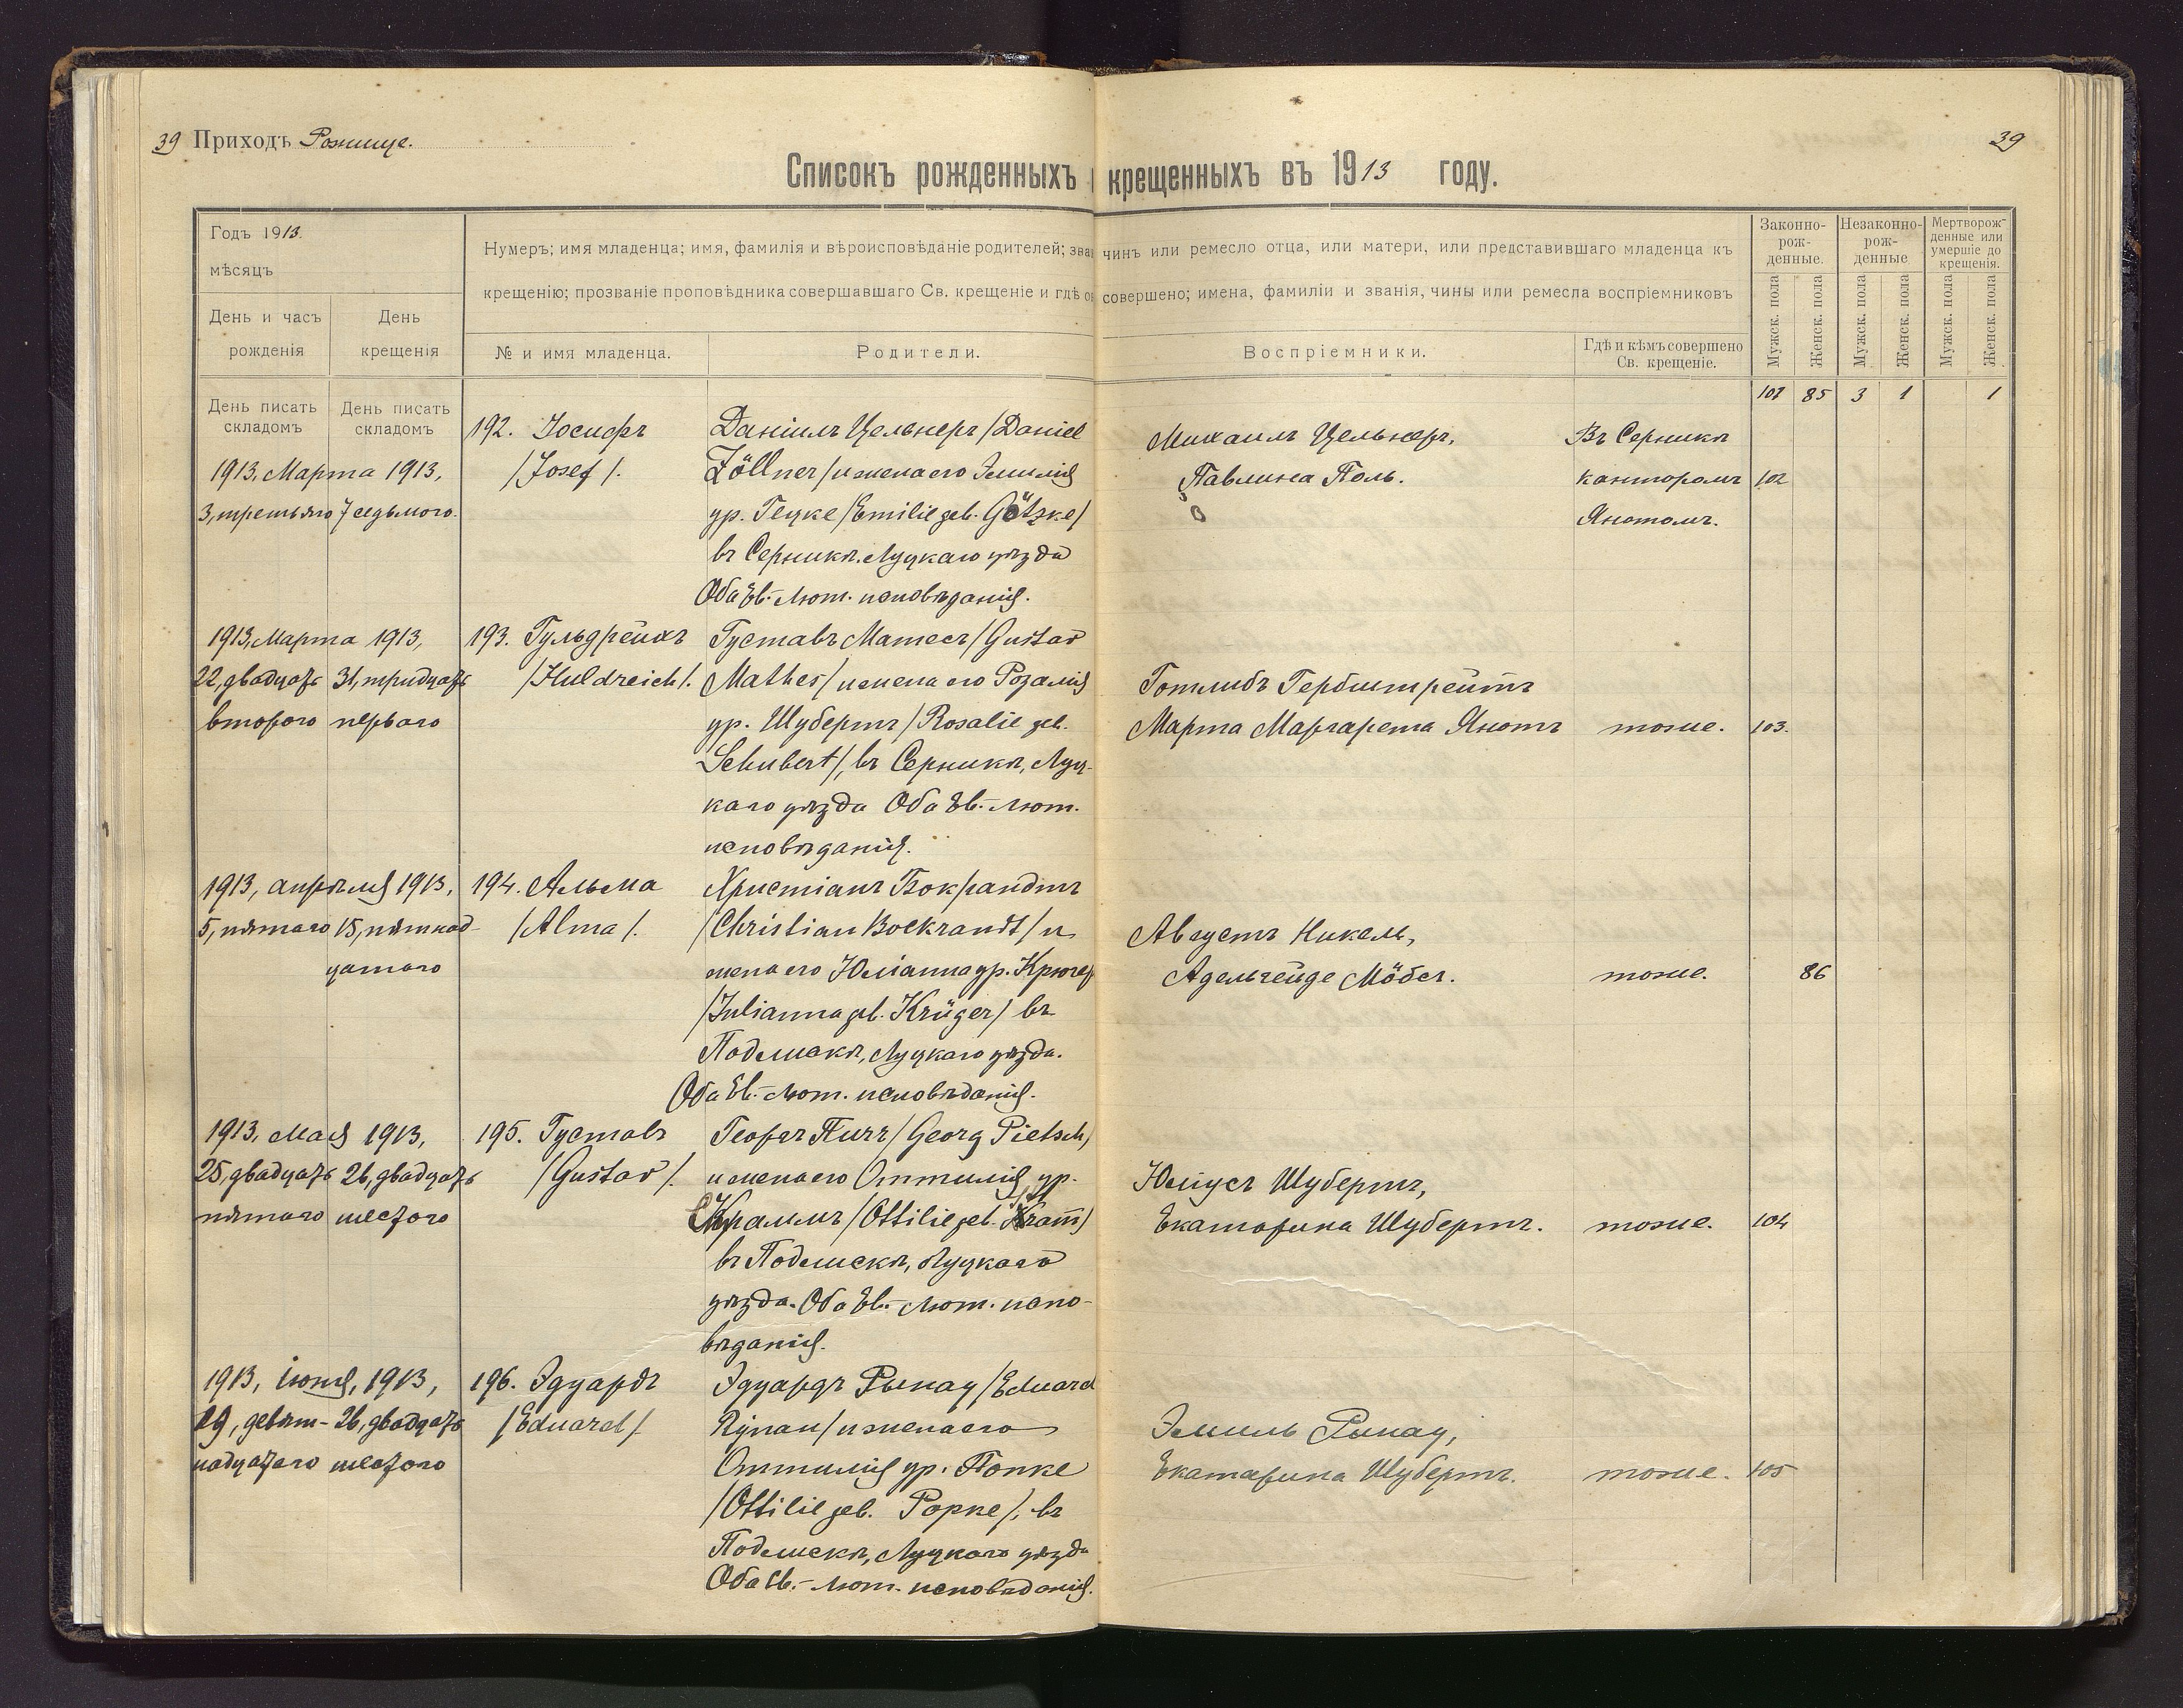 39 Приходъ Рожище.
39
Списокъ рожденныхъ крещенныхъ въ 1913 году.
Годъ 1913.
мѣсяцъ
День и часъ рожденія
День крещенія
Нумеръ; имя младенца; имя, фамилія и вѣроисповѣданіе родителей; зва чинъ или ремесло отца, или матери, или представившаго младенца къ
крещенію; прозваніе проповѣдника совершавшаго Св. крещеніе и гдѣ о совершено; имена, фамиліи и званія, чины или ремесла воспріемниковъ
№ и имя младенца.
Родители.
Воспріемники.
Гдѣ и кѣмъ совершено
Св. крещеніе.
Законно-
рож-
денные.
Незаконно-
рож-
денные
Мертворож-
денные или
умершіе до
крещенія.
Мужск. пола
Женск. пола
Мужск. пола
Женск. пола
Мужск. пола
Женск. пола
День писать
складомъ
День писать
складомъ
101 85 3 1 1
1913, Марта 1913,
3, третьяго 7 седьмого.
192. Іосифъ
/Josef/.
Даніилъ Цельнеръ /Daniel
Zöllner/ и жена его Эмилія
ур. Гецке /Emilie geb. Götzke/
въ Серникѣ, Луцкаго уѣзда
Оба Ев.-Лют. исповѣданія.
Михаилъ Цельнеръ,
Павлина Поль.
Въ Серникѣ
канторомъ
Янотомъ.
102
1913, Марта 1913,
22, двадцать 31, тридцать
второго перваго
193. Гульдрейхъ
/Huldreich/.
Густавъ Матесъ /Gustav
Mathes/ и жена его Розалія
ур. Шубертъ /Rosalie geb.
Schubert/, въ Серникѣ, Луц-
каго уѣзда Оба Ев.-Лют.
исповѣданія.
Готлибъ Гербштрейтъ
Марта Маргарета Янотъ
тоже.
103.
1913, апрѣля 1913,
5, пятаго 15, пятнад-
цатаго
194. Альма
/Alma/.
Христіанъ Бокрандтъ
/Christian Bockrandt/ и
жена его Юліанна ур. Крюгер
/Julianna geb. Krüger/ въ
Подлискѣ, Луцкаго уѣзда.
Оба Ев.-Лют. исповѣданія.
Августъ Никель,
Адельгейде Мöбсъ.
тоже.
86
1913, Мая 1913,
25, двадцать 26, двадцать
пятаго шестого
195. Густавъ
/Gustav/.
Георгъ Пичъ /Georg Pietsch/
и жена его Оттилія, ур.
Краммъ /Ottilie geb. Kram̅/
въ Подлискѣ, Луцкаго
уѣзда. Оба Ев.-Лют. испо-
вѣданія.
Юліусъ Шубертъ,
Екатарина Шубертъ.
тоже.
104
1913, Іюня, 1913,
19, девят- 26, двадцать
надцатаго шестого
196. Эдуардъ
/Eduard/.
Эдуардъ Рынау /Eduard
Rynau/ и жена его
Оттилія ур. Попке
/Ottilie geb. Popke/, въ
Подлискѣ, Луцкаго уѣзда
Оба Ев.-Лют. исповѣданія.
Эмиль Рынау,
Екатарина Шубертъ.
тоже.
105